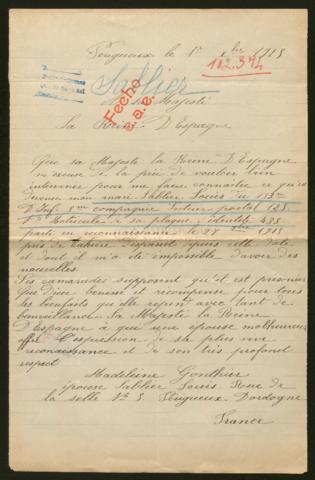 Périgueux le 1er Xbre 1915
112.394
Sablier
Fecho
s.a.e.
A sa Majesté
La Reine D'Espagne
Que sa Majesté la Reine D'Espagne
m'excuse si la prie de vouloir bien
intervenir pour me faire connaitre ce qu'est
devenu mon mari Sablier Louis du
D'Inf. compagnie secteur postal
Nº Matricule à sa plaque identité 495
parti en reconnaissance le 27 1915
près de Tahure disparut depuis cette date
et dont il m'a été impossible d'avoir des
nouvelles.
Ses camarades supposent qu'il est prisonnier
que Dieu benisse et recompense pour tous
les bienfaits qu'elle repend avec tant de
bienveillance Sa Majesté la Reine
D'Espagne à qui une epouse malheureuse
offre l'expression de sa plus vive
reconaissance et de son très profond
respect
Madeleine Gonthier
épouse Sablier Louis Rue de
la selle Nº 5 Périgueux Dordogne
France